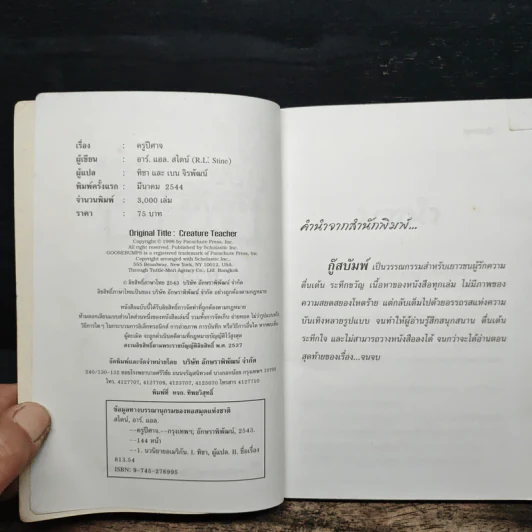 เรื่อง : ครูปีศาจ
ผู้เขียน : อาร์. แอล. สไตน์ (R.L. Stine)
ผู้แปล : ทิชา และ เบน จิรพัฒน์
พิมพ์ครั้งแรก : มีนาคม 2544
จำนวนพิมพ์ : 3,000 เล่ม
ราคา : 75 บาท
Original Title : Creature Teacher
Copyright © 1998 by Parachute Press, Inc.
All right reserved. Published by Scholastic Inc.
GOOSEBUMPS is a registered trademark of Parachute Press, Inc.
Copyright arranged with Scholastic Inc.
555 Broadway, New York, NY 10012, USA.
Through Tuttle-Mori Agency Co., Ltd. Bangkok
© ลิขสิทธิ์ภาษาไทย 2543 บริษัท อักษราพิพัฒน์ จำกัด
ลิขสิทธิ์ภาษาไทยเป็นของ บริษัท อักษราพิพัฒน์ จำกัด อย่างถูกต้องตามกฎหมาย
หนังสือฉบับนี้ได้รับลิขสิทธิ์การจัดทำที่ถูกต้องตามกฎหมาย
ความลิขสิทธิ์ตามพระราชบัญญัติลิขสิทธิ์ พ.ศ. 2537
จัดพิมพ์และจัดจำหน่ายโดย บริษัท อักษราพิพัฒน์ จำกัด
พิมพ์ที่ หจก. ทิพยวิสุทธิ์
ข้อมูลทางบรรณานุกรมของหอสมุดแห่งชาติ
สไตน์, อาร์. แอล.
--ครูปีศาจ.--กรุงเทพฯ: อักษราพิพัฒน์, 2543.
--144 หน้า
--1. นวนิยายอเมริกัน. I. ทิชา, ผู้แปล. II. ชื่อเรื่อง
813.54
ISBN: 9-740-276995
คำนำจากสำนักพิมพ์...
กู๊สบัมพ์ เป็นวรรณกรรมสำหรับเยาวชนผู้รักความ
ตื่นเต้น ระทึกขวัญ เนื้อหาของหนังสือทุกเล่ม ไม่มีภาพของ
ความสยดสยองโหดร้าย แต่กลับเต็มไปด้วยอรรถรสแห่งความ
บันเทิงหลายรูปแบบ จนทำให้ผู้อ่านรู้สึกสนุกสนาน ตื่นเต้น
ระทึกใจ และไม่สามารถวางหนังสือได้ จนกว่าจะได้อ่านตอน
สุดท้ายของเรื่อง...จนจบ